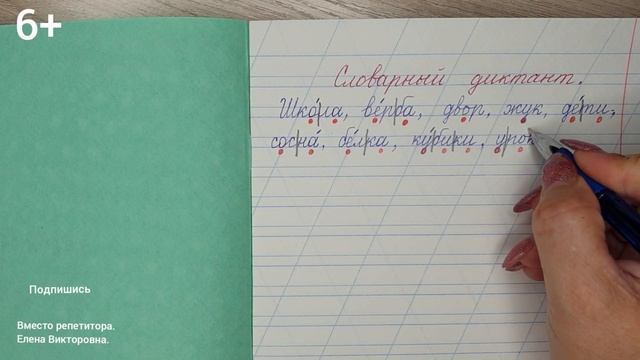 6+
Словарный диктант.
Школа, верба, двор, жук, дети,
сосна, белка, кубики, урок
Подпишись
Вместо репетитора.
Елена Викторовна.